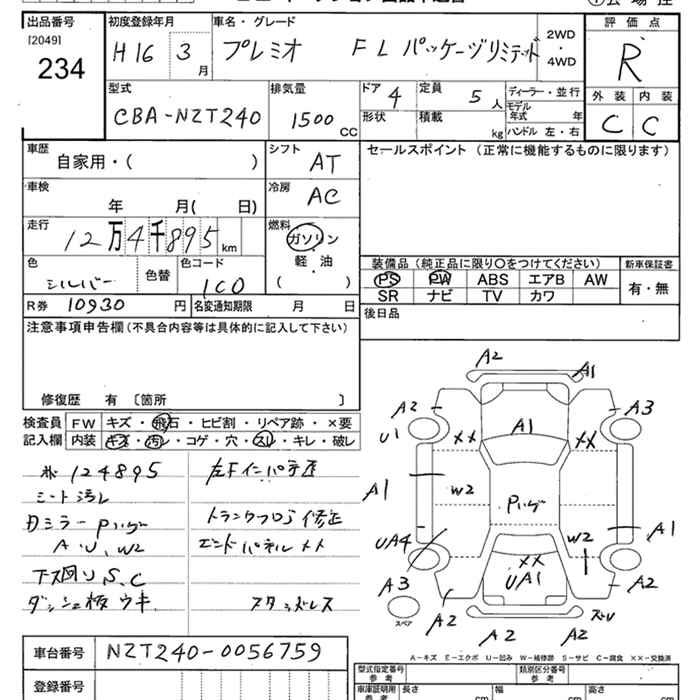 出品番号 初度登録年月 車名・グレード 評価点
[2049]
234 H16 3月 プレミオ FL パッケージリミテッド 2WD・4WD R
型式 排気量 ドア 4 定員 5人 ディーラー・並行 外装 内装
CBA-NZT240 1500CC 形状 積載 kg モデル年式 年 C C
ハンドル 左・右
車歴 シフト AT セールスポイント (正常に機能するものに限ります)
自家用・( )
車検 年 月( 日) 冷房 AC
走行 12万4千895km 燃料 ガソリン
軽・油
( )
色 シルバー 色替 色コード 1C0
装備品(純正品に限り○をつけてください) 新車保証書
PS PW ABS エアB AW 有・無
SR ナビ TV カワ
R券 10930円 名変通知期限 月 日 後日品
注意事項申告欄(不具合内容等は具体的に記入して下さい)
修復歴 有 〔箇所 〕
検査員 FW キズ・飛石・ヒビ割・リペア跡・×要
記入欄 内装 キズ・汚レ・コゲ・穴・スレ・キレ・破レ
124895
シート汚レ
トランクフロア修正
Pハゲ
A、U、W2
エンドパネル ××
下廻りS、C
ダッシュ板ウキ
スタッドレス
A2 A1
A2 A3
U1 ×× A1 ××
A1 W2 Pハゲ
UA4 W2 A1
A3 ×× UA1 A2
スペア A2 A2 A2
A-キズ E-エクボ U-凹み W-補修跡 S-サビ C-腐食 ××-交換済
車台番号 NZT240-0056759
型式指定番号 参考 類別区分番号 参考
登録番号 車庫証明用 参考 長さ cm 幅 cm 高さ cm